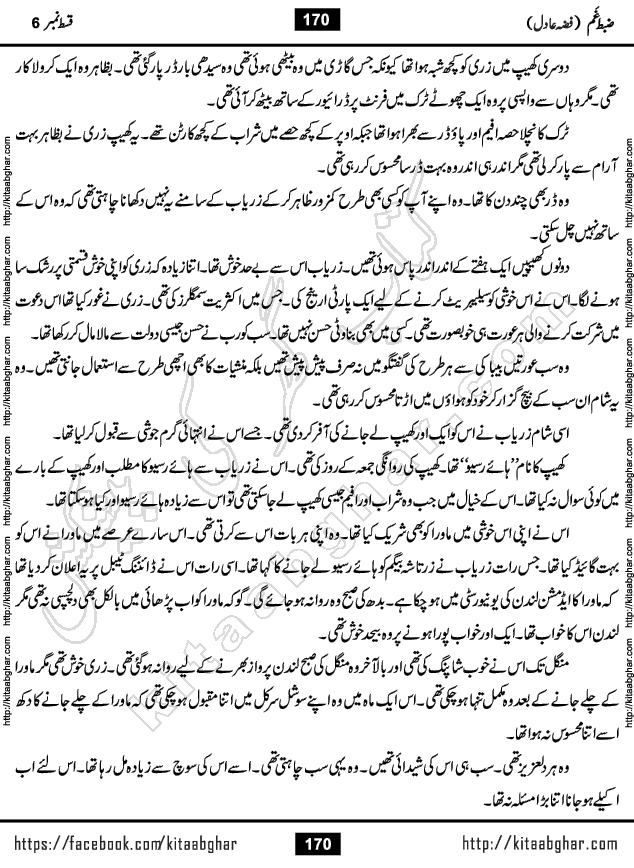 ضبطِ غم (فضہ عادل)
170
قسط نمبر 6
دوسری کھیپ میں زری کو کچھ شبہ ہوا تھا کیونکہ جس گاڑی میں وہ بیٹھی ہوئی تھی وہ سیدھی بارڈر پار گئی تھی۔ بظاہر وہ ایک کرولا کار
تھی۔ مگر وہاں سے واپسی پر وہ ایک چھوٹے ٹرک میں فرنٹ پر ڈرائیور کے ساتھ بیٹھ کر آئی تھی۔
ٹرک کا نچلا حصہ افیم اور پاؤڈر سے بھرا ہوا تھا جبکہ اوپر کے کچھ حصے میں شراب کے کچھ کارٹن تھے۔ یہ کھیپ زری نے بظاہر بہت
آرام سے پار کر لی تھی مگر اندر ہی اندر وہ بہت ڈر سا محسوس کر رہی تھی۔
وہ ڈر بھی چند دن کا تھا۔ وہ اپنے آپ کو کسی بھی طرح کمزور ظاہر کر کے زریاب کے سامنے یہ نہیں دکھانا چاہتی تھی کہ وہ اس کے
ساتھ نہیں چل سکتی۔
دونوں کھیپیں ایک ہفتے کے اندر اندر پاس ہوئی تھیں۔ زریاب اس سے بے حد خوش تھا۔ اتنا زیادہ کہ زری کو اپنی خوش قسمتی پر رشک سا
ہونے لگا۔ اس نے اس خوشی کو سیلیبریٹ کرنے کے لیے ایک پارٹی ارینج کی۔ جس میں اکثریت سمگلرز کی تھی۔ زری نے غور کیا تھا اس دعوت
میں شرکت کرنے والی ہر عورت ہی خوبصورت تھی۔ کسی میں بھی بناوٹی حسن نہیں تھا۔ سب کو رب نے حسن جیسی دولت سے مالا مال کر رکھا تھا۔
وہ سب عورتیں بیبا کی سے ہر طرح کی گفتگو میں نہ صرف پیش پیش تھیں بلکہ منشیات کا بھی اچھی طرح سے استعمال جانتی تھیں۔ وہ
یہ شام ان سب کے بیچ گزار کر خود کو ہواؤں میں اڑتا محسوس کر رہی تھی۔
اسی شام زریاب نے اس کو ایک اور کھیپ لے جانے کی آفر کر دی تھی۔ جسے اس نے انتہائی گرم جوشی سے قبول کر لیا تھا۔
کھیپ کا نام ''ہائے رسیو'' تھا۔ کھیپ کی روانگی جمعہ کے روز کی تھی۔ اس نے زریاب سے ہائے رسیو کا مطلب اور کھیپ کے بارے
میں کوئی سوال نہ کیا تھا۔ اس کے خیال میں جب وہ شراب اور افیم جیسی کھیپ لے جا سکتی تھی تو اس سے زیادہ ہائے رسیو اور کیا ہو سکتا تھا۔
اس نے اپنی اس خوشی میں ماورا کو بھی شریک کیا تھا۔ وہ اپنی ہر بات اس سے کرتی تھی۔ اس سارے عرصے میں ماورا نے اس کو
بہت گائیڈ کیا تھا۔ جس رات زریاب نے زرتاشہ بیگم کو ہائے رسیو لے جانے کا کہا تھا۔ اسی رات اس نے ڈائننگ ٹیبل پر یہ اعلان کر دیا تھا
کہ ماورا کا ایڈمشن لندن کی یونیورسٹی میں ہو چکا ہے۔ بدھ کی صبح وہ روانہ ہو جائے گی۔ گو کہ ماورا کو اب پڑھائی میں بالکل بھی دلچسپی نہ تھی مگر
لندن اس کا خواب تھا۔ ایک اور خواب پورا ہونے پر وہ بیحد خوش تھی۔
منگل تک اس نے خوب شاپنگ کی تھی اور بالآخر وہ منگل کی صبح لندن پرواز بھرنے کے لیے روانہ ہو گئی تھی۔ زری خوش تھی مگر ماورا
کے چلے جانے کے بعد وہ مکمل تنہا ہو چکی تھی۔ اس ایک ماہ میں وہ اپنے سوشل سرکل میں اتنا مقبول ہو چکی تھی کہ ماورا کے چلے جانے کا دکھ
اسے اتنا محسوس نہ ہوا تھا۔
وہ ہر دلعزیز تھی۔ سب ہی اس کی شیدائی تھیں۔ وہ یہی سب چاہتی تھی۔ اسے اس کی سوچ سے زیادہ مل رہا تھا۔ اس لئے اب
اکیلے ہو جانا اتنا بڑا مسئلہ نہ تھا۔
کتاب گھر کی پیشکش
kitaabghar.com
http://kitaabghar.com http://kitaabghar.com http://kitaabghar.com http://kitaabghar.com http://kitaabghar.com http://kitaabghar.com
http://kitaabghar.com http://kitaabghar.com http://kitaabghar.com http://kitaabghar.com http://kitaabghar.com http://kitaabghar.com
https://facebook.com/kitaabghar
170
http://kitaabghar.com